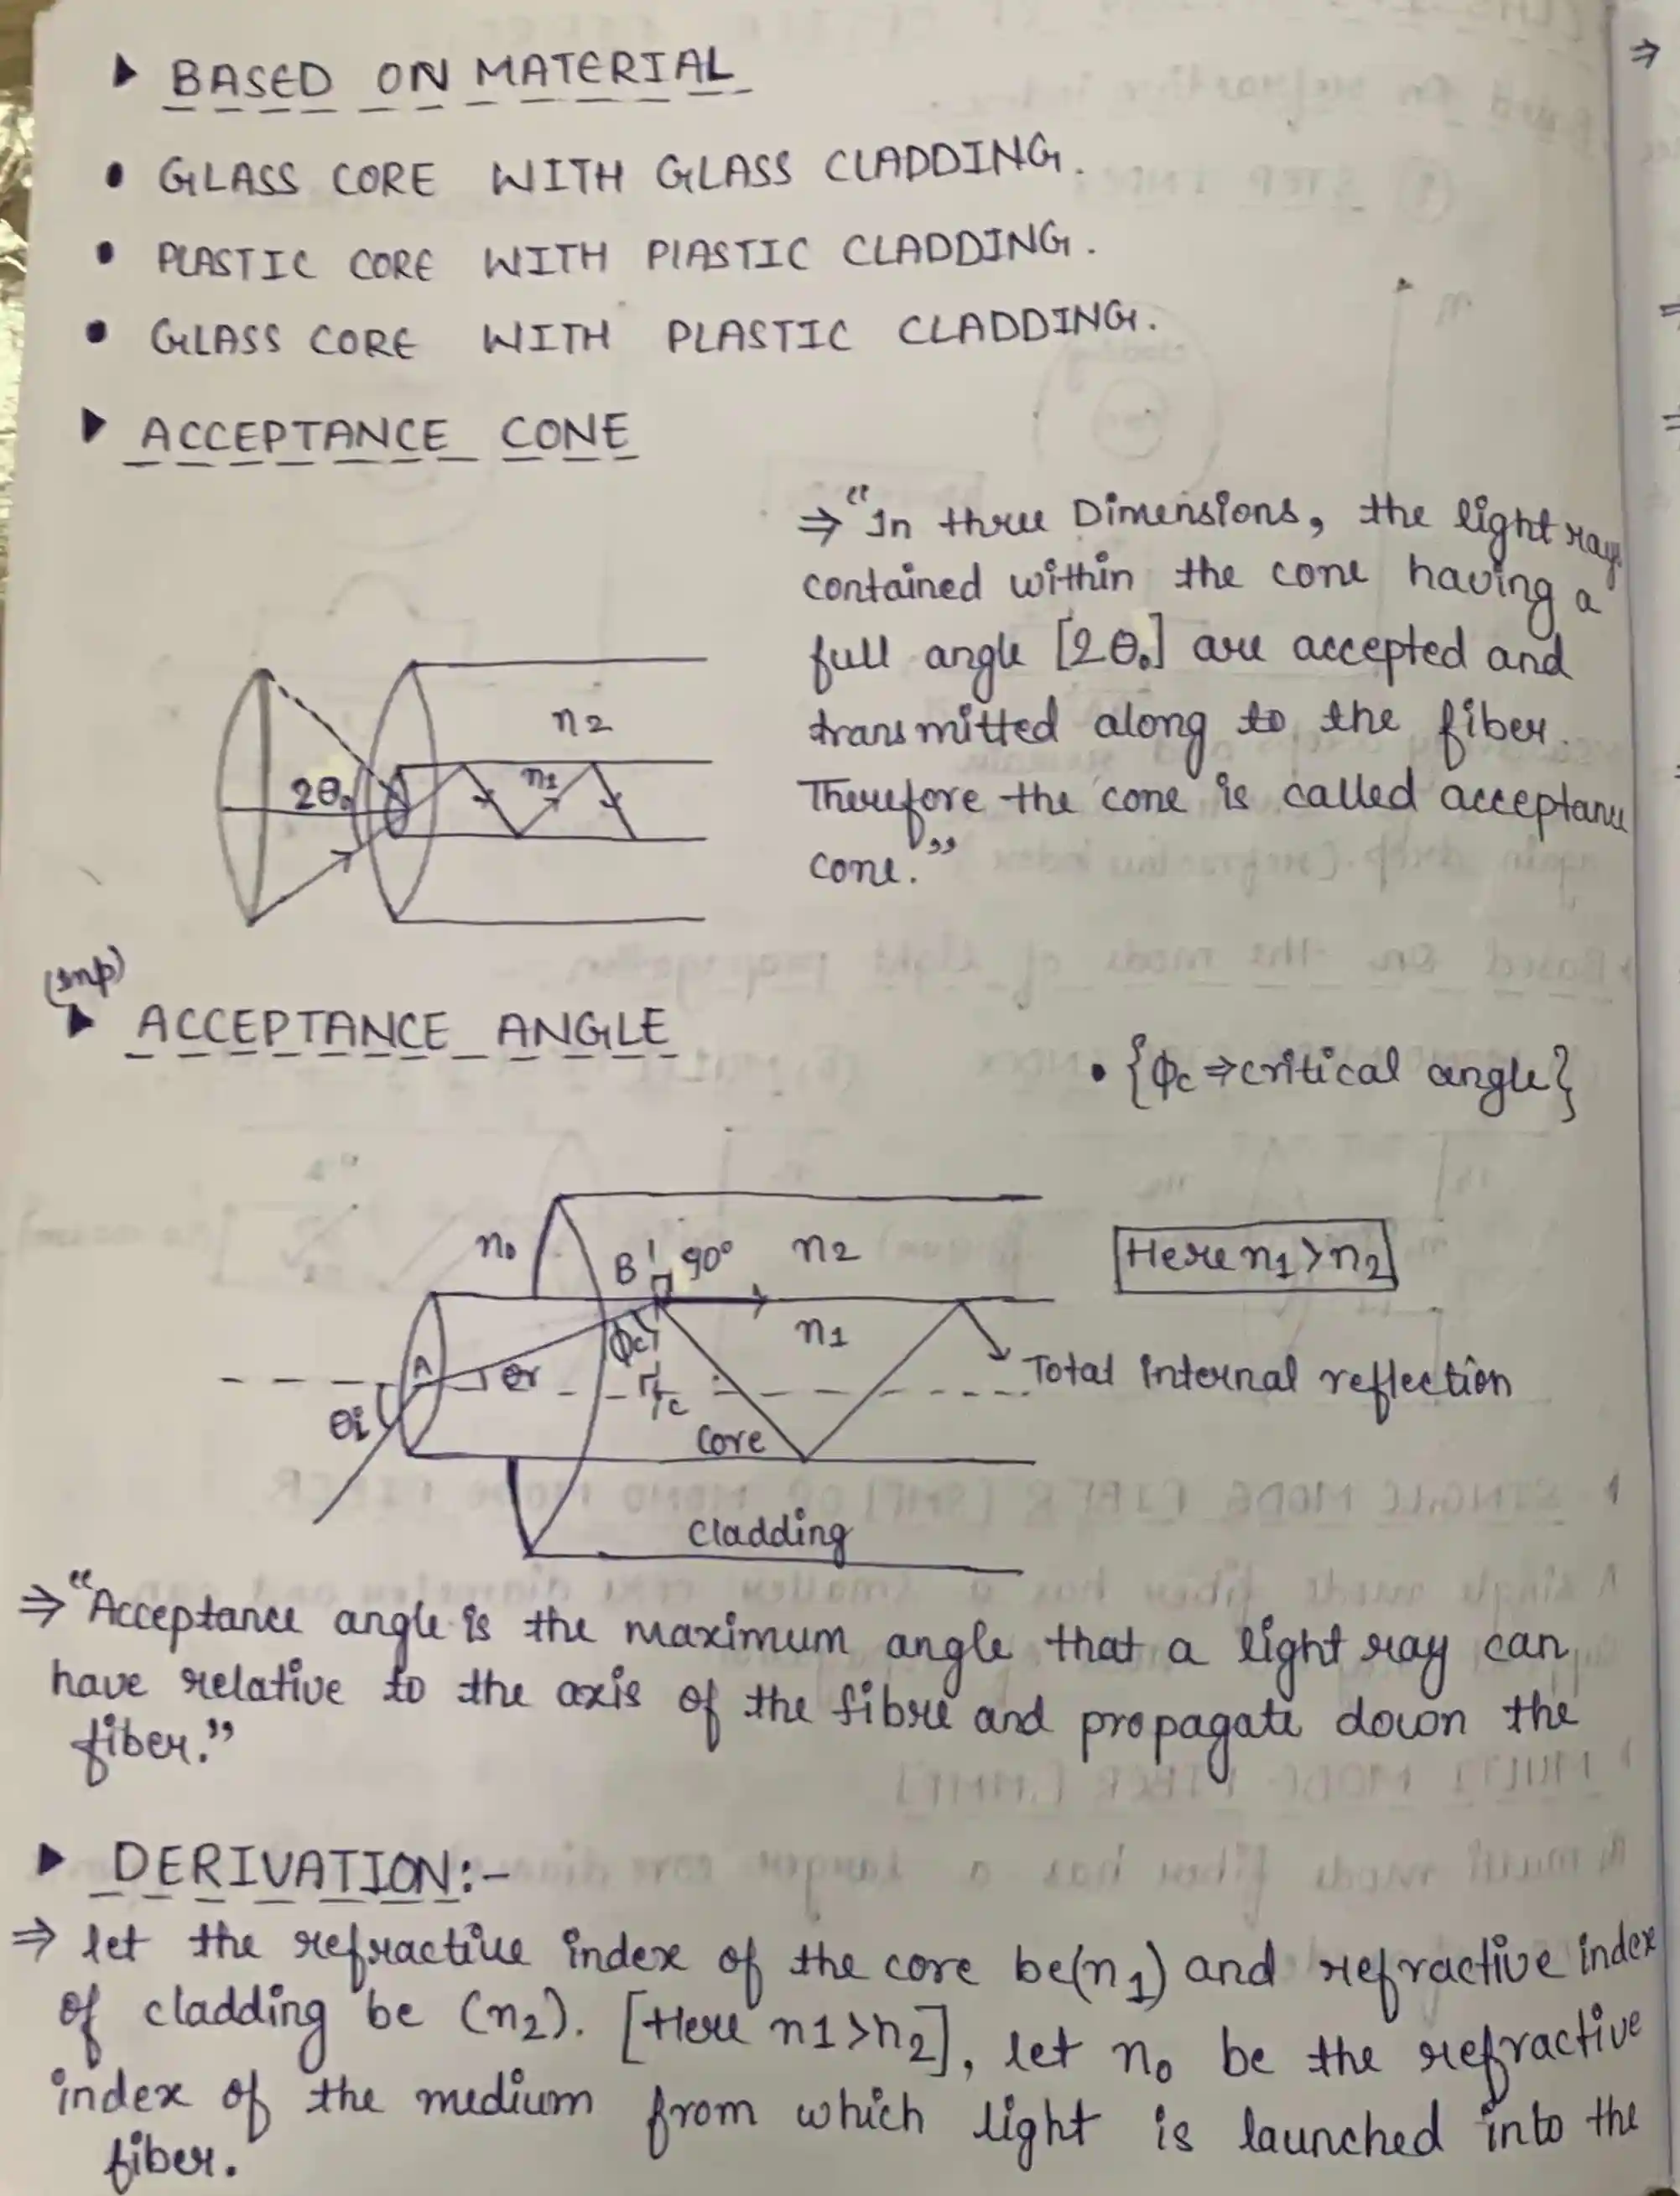 ▶ BASED ON MATERIAL
• GLASS CORE WITH GLASS CLADDING.
• PLASTIC CORE WITH PlASTIC CLADDING.
• GLASS CORE WITH PLASTIC CLADDING.
▶ ACCEPTANCE CONE
⇒ "In three Dimensions, the light rays
contained within the cone having a
full angle [2θ₀] are accepted and
transmitted along to the fiber.
Therefore the cone is called acceptance
cone."
n2
2θ₀
n1
(Imp)
▶ ACCEPTANCE ANGLE
• {ϕc ⇒ critical angle}
n₀
B
90°
n2
Here n1 > n2
ϕc
n1
A
θr
C
Total internal reflection
θi
Core
Cladding
⇒ "Acceptance angle is the maximum angle that a light ray can
have relative to the axis of the fibre and propagate down the
fiber."
▶ DERIVATION:-
⇒ let the refractive index of the core be (n1) and refractive index
of cladding be (n2). [Here n1 > n2], let n₀ be the refractive
index of the medium from which light is launched into the
fiber.